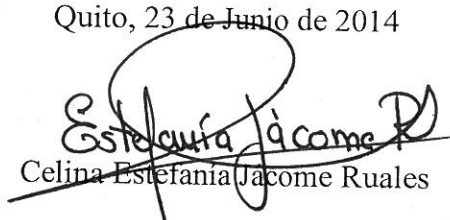 Quito, 23 de Junio de 2014
Estefanía Jácome R
Celina Estefanía Jácome Ruales